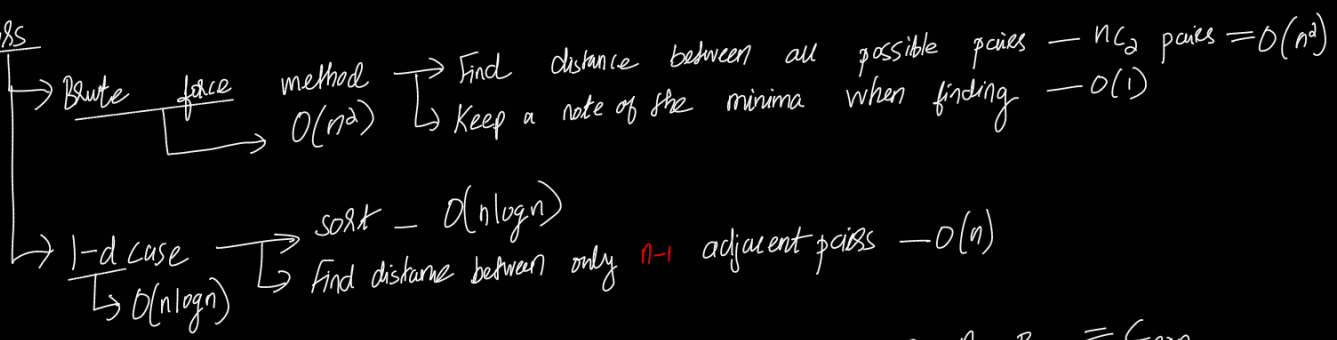 → Brute force method → Find distance between all possible pairs — nC₂ pairs = O(n²)
→ O(n²) ↳ Keep a note of the minima when finding — O(1)
→ 1-d case → sort — O(nlogn)
↳ O(nlogn) ↳ Find distance between only n-1 adjacent pairs — O(n)